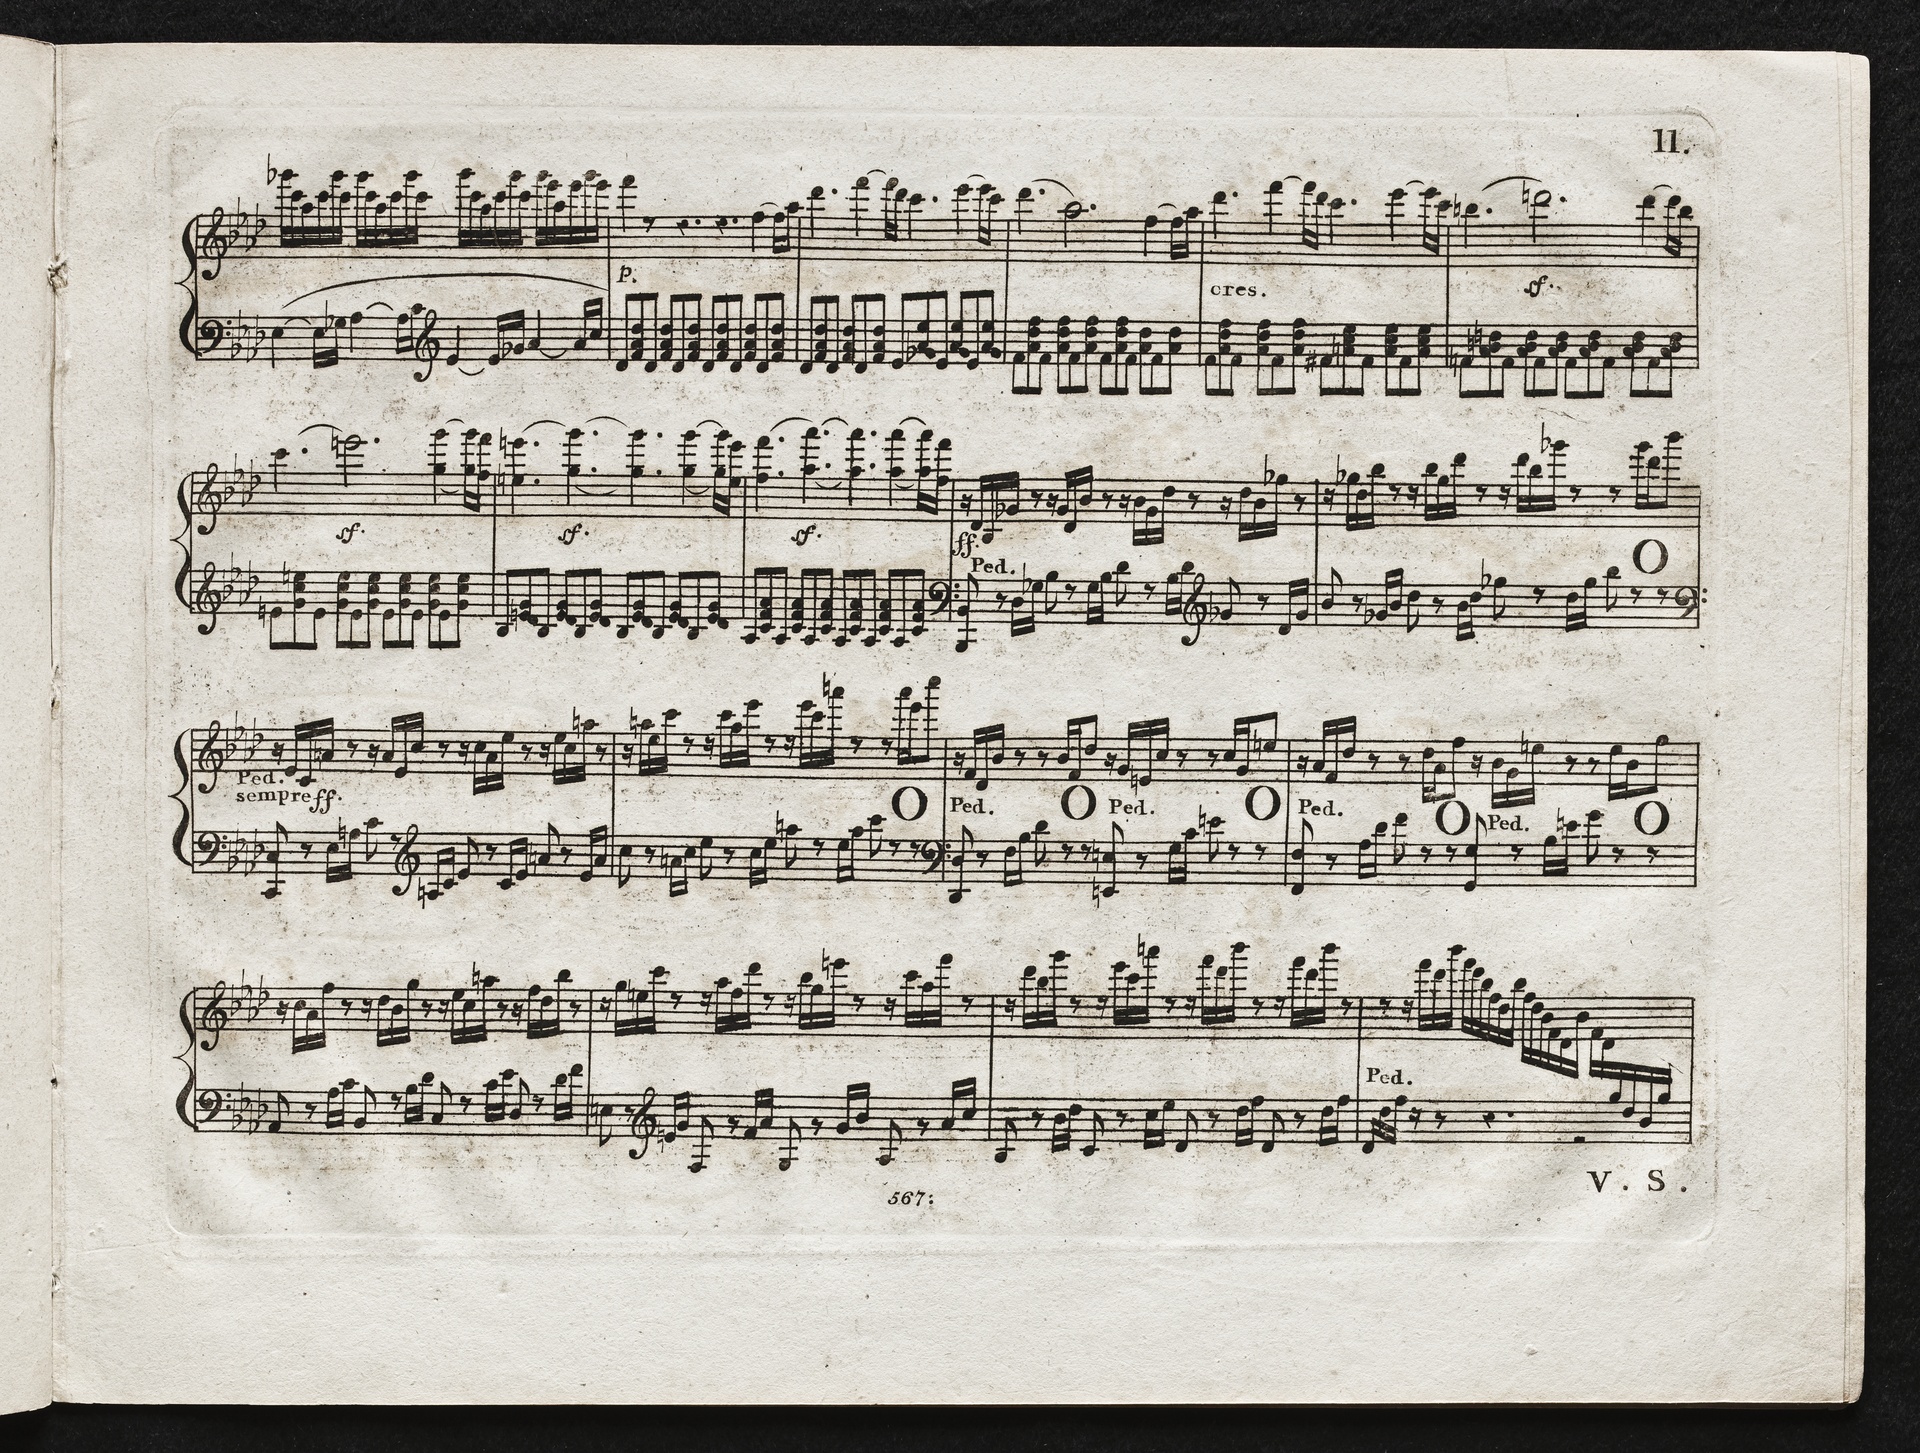 11.
p.
cres.
sf.
sf. sf. sf. ff.
Ped. O
Ped.
sempre ff.
O Ped. O Ped. O Ped. O Ped. O
Ped.
567:
V. S.